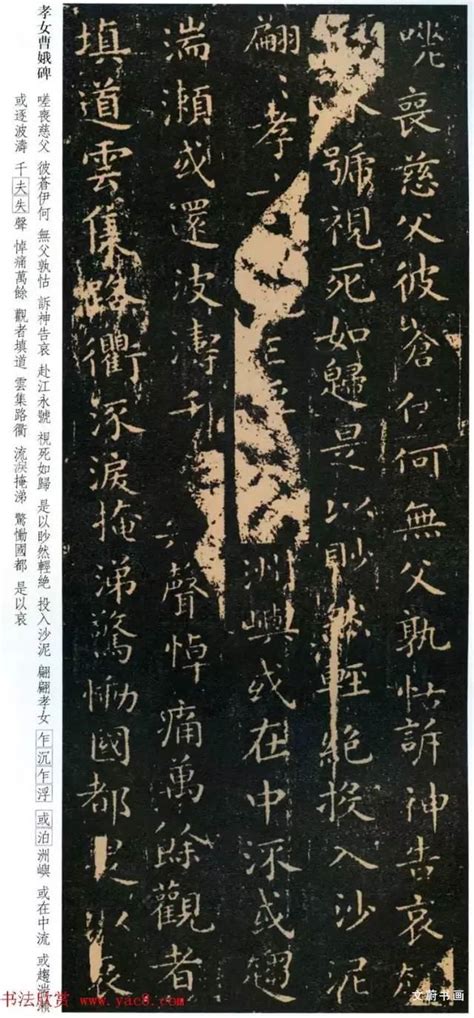 嗟喪慈父彼蒼伊何無父孰怙訴神告哀
號視死如歸是以眇然輕絕投入沙泥
翩〻孝洲嶼或在中流或趨
湍瀨或還波濤千聲悼痛萬餘觀者
填道雲集路衢流淚掩涕驚慟國都是以哀
孝女曹娥碑
嗟喪慈父 彼蒼伊何 無父孰怙 訴神告哀 赴江永號 視死如歸 是以眇然輕絕 投入沙泥 翩翩孝女 乍沉乍浮 或泊洲嶼 或在中流 或趨湍瀨
或逐波濤 千夫失聲 悼痛萬餘 觀者填道 雲集路衢 流淚掩涕 驚慟國都 是以哀
书法欣赏 www.yac8.com
文蔚书画